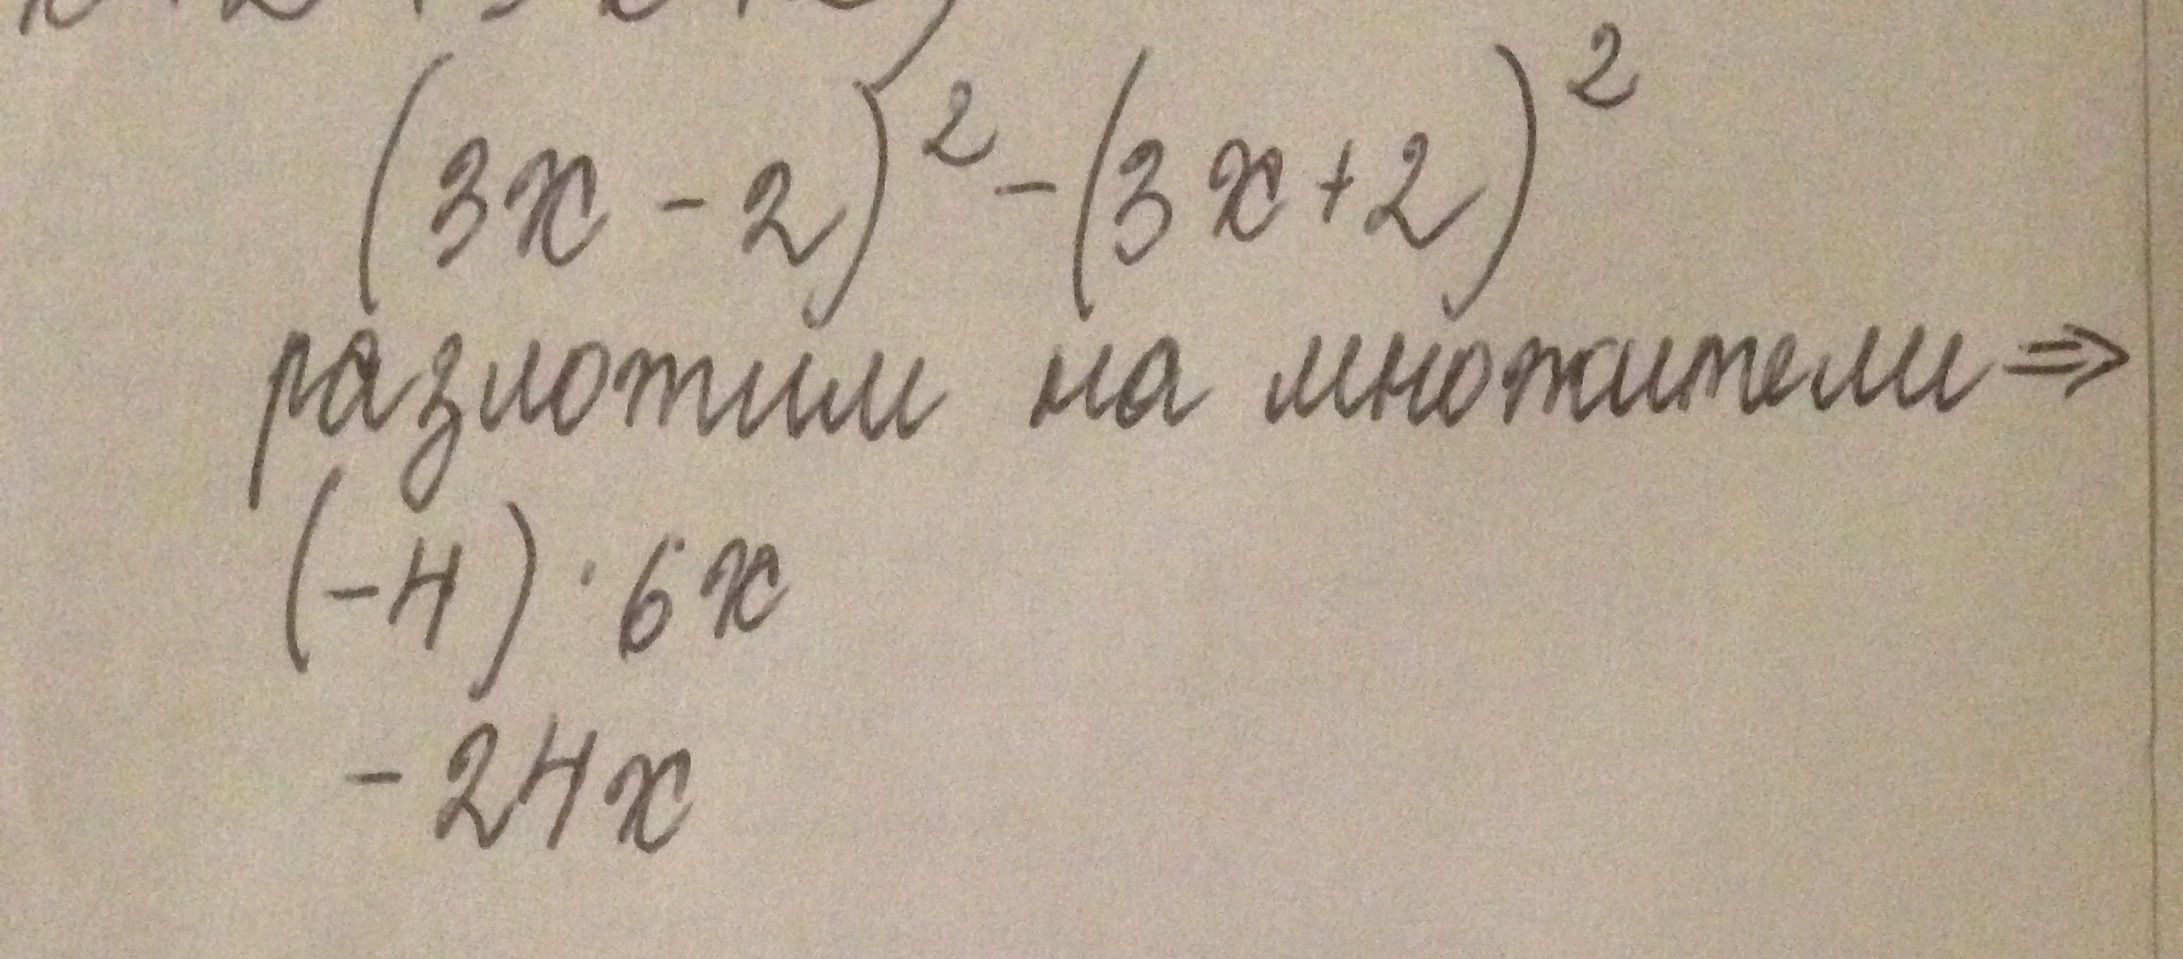 (3x - 2)² - (3x + 2)²
разложим на множители ⇒
(-4) · 6x
- 24x